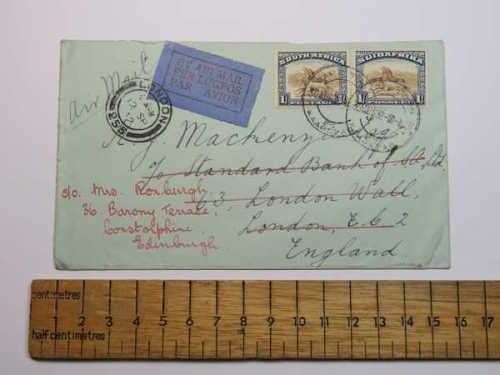 Air Mail
BY AIR MAIL
PER LUGPOS
PAR AVION
SOUTH AFRICA
SUIDAFRIKA
1/-
1/-
LONDON
25B
A. J. Mackenzie
c/o Standard Bank of SA. Ltd.
63, London Wall,
London, E.C.2
England
c/o. Mrs. Roxburgh.
36. Barony Terrace,
Corstolphine.
Edinburgh
centimetres
1 2 3 4 5 6 7 8 9 10 11 12 13 14 15 16 17
half centimetres